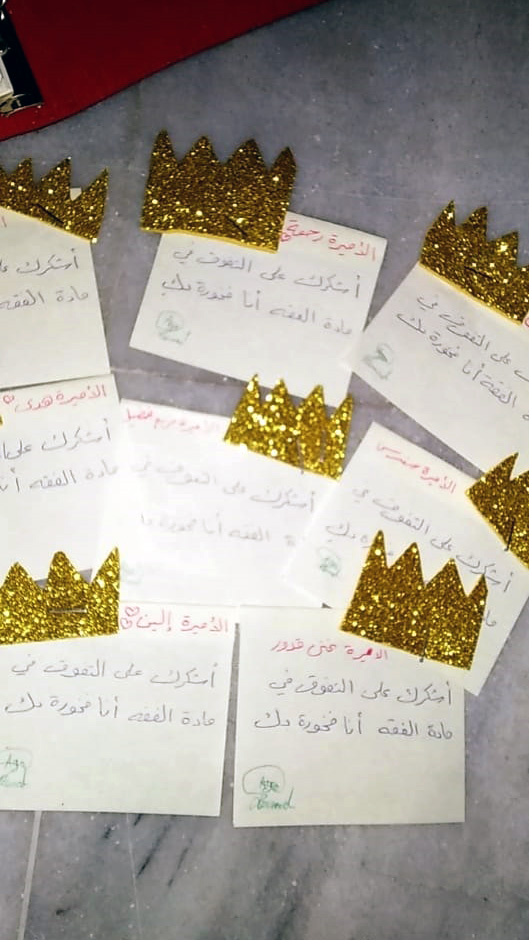 الأميرة رحمة
أشكرك على التفوق في
مادة الفقه أنا فخورة بك
أشكرك
مادة الفقه
على التفوق في
الفقه أنا فخورة بك
الأميرة هدى
أشكرك على
مادة الفقه
الأميرة مريم فضل
أشكرك على التفوق في
الفقه أنا فخورة
الأميرة
أشكرك على التفوق في
بك
الأميرة إلين
أشكرك على التفوق في
مادة الفقه أنا فخورة بك
الأميرة قدور
أشكرك على التفوق في
مادة الفقه أنا فخورة بك